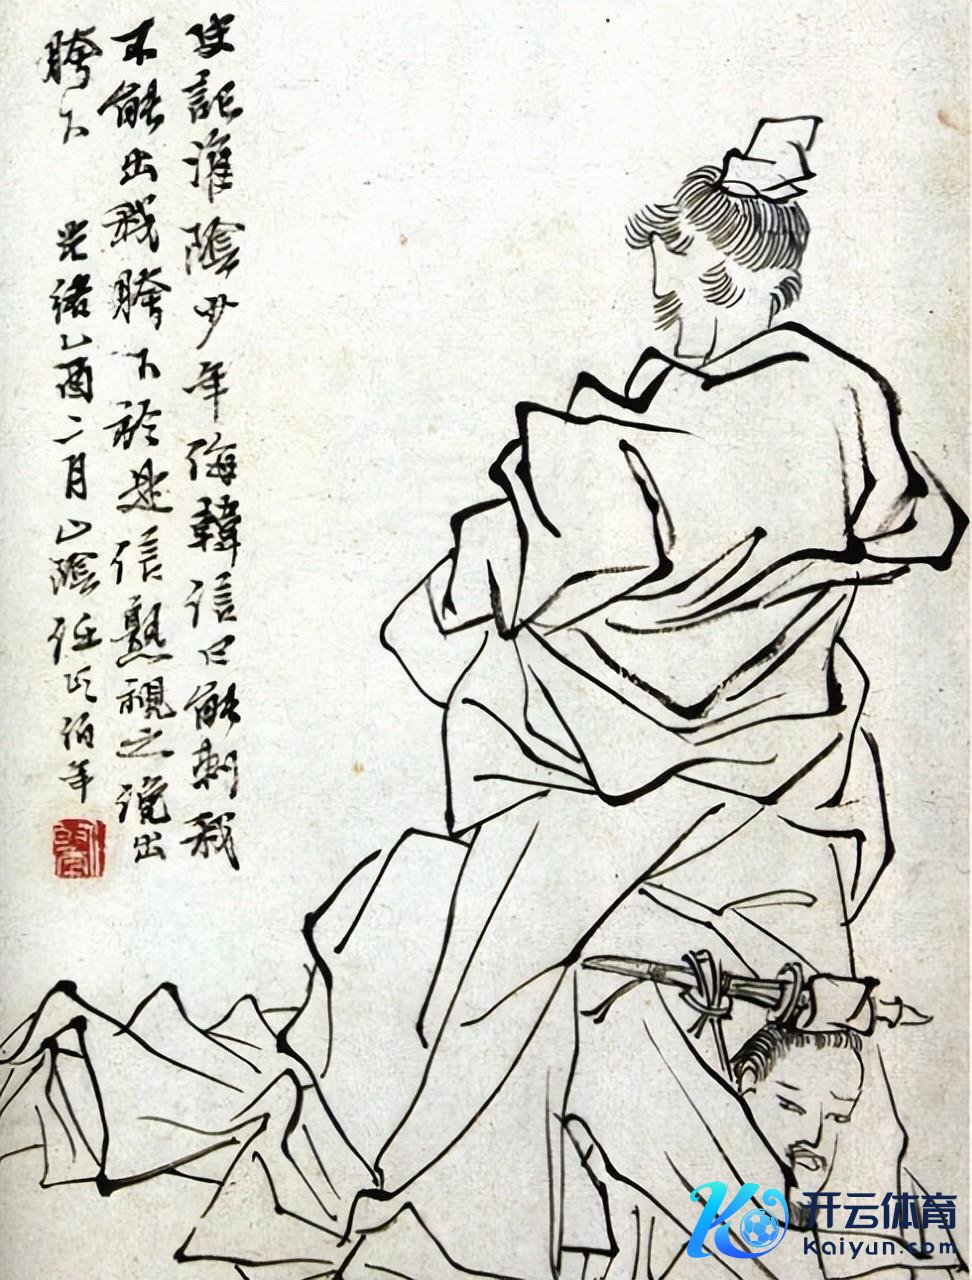 史記淮陰少年侮韓信曰能刺我
不能出我胯下於是信熟視之俛出
胯下 光緒乙酉二月山陰任頤伯年
开云体育
kaiyun.com